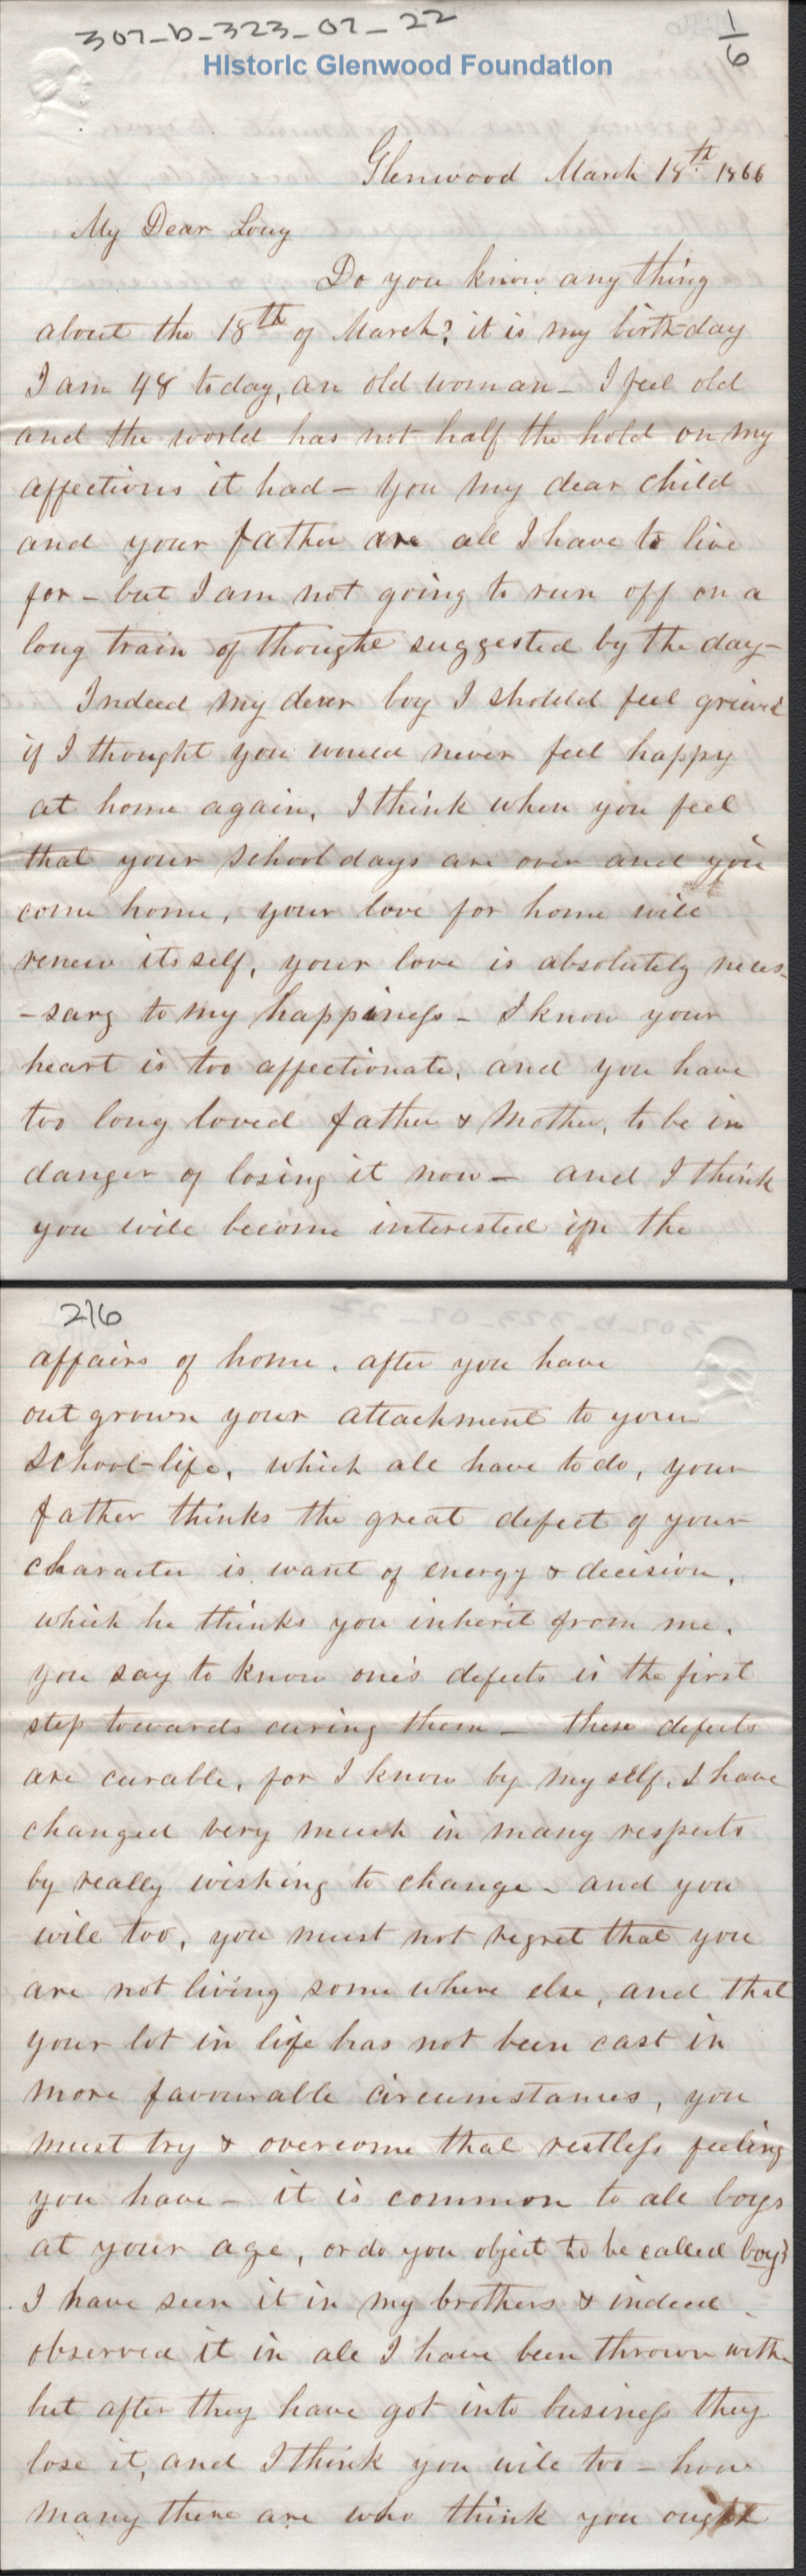 307-b-323-07-22
1/6
Historic Glenwood Foundation
Glenwood March 18th 1866
My Dear Lony
Do you know any thing
about the 18th of March? it is my birth-day
I am 48 today, an old woman - I feel old
and the world has not half the hold on my
affections it had - you my dear child
and your father are all I have to live
for - but I am not going to run off on a
long train of thought suggested by the day -
Indeed my dear boy I should feel grieved
if I thought you would never feel happy
at home again, I think when you feel
that your school days are over and you
come home, your love for home will
renew its self, your love is absolutely neces-
-sary to my happiness - I know your
heart is too affectionate, and you have
too long loved father & mother, to be in
danger of losing it now - and I think
you will become interested in the
2/6
affairs of home. after you have
out grown your attachment to your
School-life, which all have to do, your
father thinks the great defect of your
character is want of energy & decision,
which he thinks you inherit from me.
you say to know one's defects is the first
step towards curing them - these defects
are curable, for I know by my self, I have
changed very much in many respects
by really wishing to change - and you
will too, you must not regret that you
are not living some where else, and that
your lot in life has not been cast in
more favourable circumstances, you
must try & overcome that restless feeling
you have - it is common to all boys
at your age, or do you object to be called boy?
I have seen it in my brothers & indeed
observed it in all I have been thrown with
but after they have got into business they
lose it, and I think you will too - how
many there are who think you ought